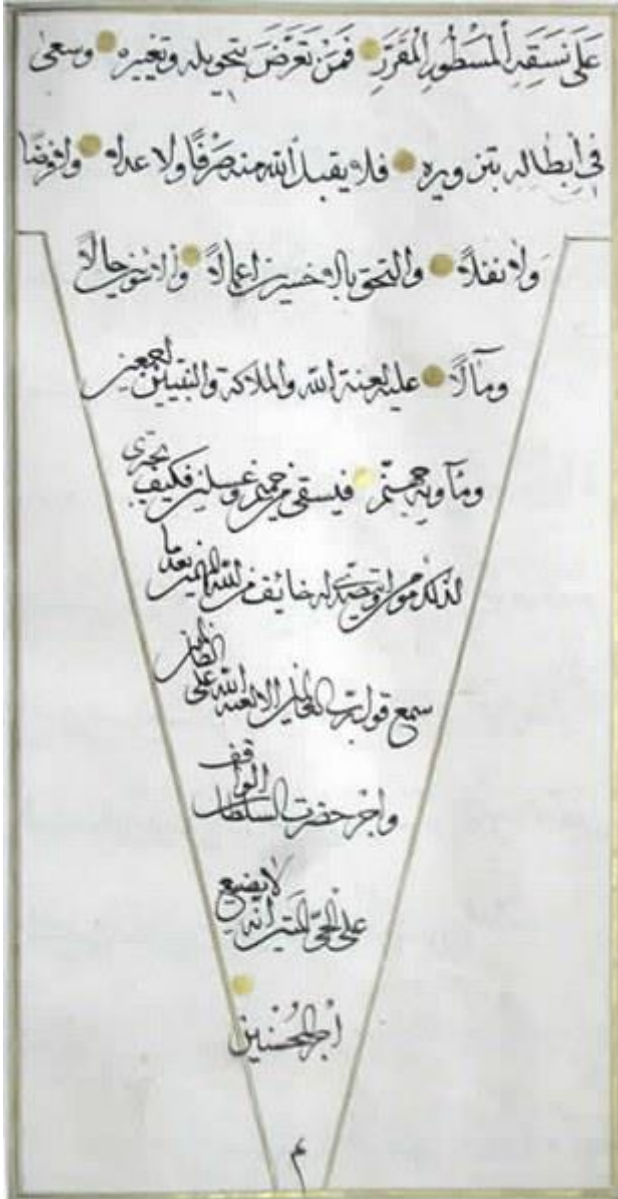 عَلَى نَسَقِهِ الْمَسْطُورِ الْمُقَرَّرِ فَمَنْ تَعَرَّضَ بتحويله وتغييره وسعى
في إبطاله بتزويره فلا يقبل الله منه صَرْفًا ولا عدلا ولا فرضا
ولا نفلاً والتحق بالاخسرين اعمالاً والاسوئين حالاً
ومآلاً عليه لعنة الله والملائكة والنبيين اجمعين
ومأويه جهنم فيسقى من حميم وغسلين فكيف يجترى
لذلك من له خائف من الله المهيمن بعدما
سمع قول رب العالمين الا لعنة الله على الظالمين
واجر حضرت السلطان الواقف
على الحىّ المتين انه لا يضيع
اجر المُحْسنين
م